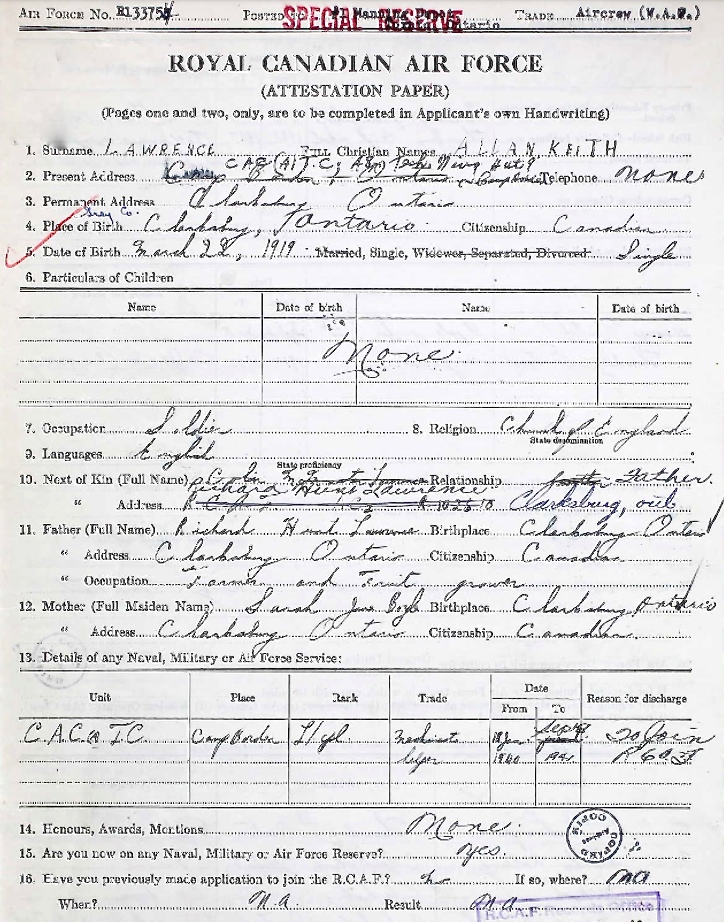 AIR FORCE No. R133754 POSTED TO Manning Depot TRADE Aircrew (W.A.G.)
SPECIAL RESERVE Ontario
ROYAL CANADIAN AIR FORCE
(ATTESTATION PAPER)
(Pages one and two, only, are to be completed in Applicant's own Handwriting)
1. Surname LAWRENCE FULL Christian Names ALLAN KEITH
2. Present Address Telephone none
3. Permanent Address Clarksburg Ontario
Grey Co.
4. Place of Birth Clarksburg, Ontario Citizenship Canadian
5. Date of Birth March 22, 1919 Married, Single, Widower, Separated, Divorced. Single
6. Particulars of Children
Name Date of birth Name Date of birth
None
7. Occupation Soldier 8. Religion Church of England
State denomination
9. Languages English
State proficiency
10. Next of Kin (Full Name) Richard Hunt Lawrence Relationship Father
" Address Clarksburg, ont
11. Father (Full Name) Richard Hunt Lawrence Birthplace Clarksburg Ontario
" Address Clarksburg Ontario Citizenship Canadian
" Occupation Farmer and Fruit grower
12. Mother (Full Maiden Name) Sarah Jane Boyle Birthplace Clarksburg Ontario
" Address Clarksburg Ontario Citizenship Canadian
13. Details of any Naval, Military or Air Force Service:
Unit Place Rank Trade Date Reason for discharge
From To
C.A.C. T.C. Camp Borden L/cpl Sept To Join
1940 1941 R.C.A.F
14. Honours, Awards, Mentions None
15. Are you now on any Naval, Military or Air Force Reserve? yes
16. Have you previously made application to join the R.C.A.F.? no If so, where? NA
When? N.A. Result N.A.
R.C.A.F